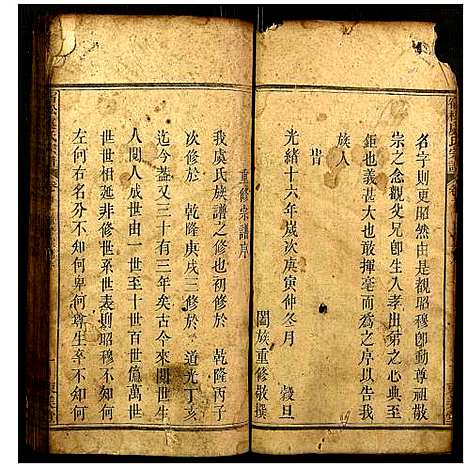 名字則更昭然由是觀昭穆卽動尊祖敬
宗之念觀父兄卽生入孝出弟之心典至
鉅也義甚大也敢揮毫而為之序以告
族人
旹
光緒十六年歲次庚寅仲冬月 穀旦
闔族重修敬撰
重修宗譜序
我虞氏族譜之修也初修於 乾隆丙子
次修於 乾隆庚戌三修於 道光丁亥
迄今蓋又三十有三年矣古今來閱世生
人閱人成世由一世至十世百世億萬世
世世相延非修世系世表則昭穆不知何
左何右名分不知何卑何尊生卒不知何